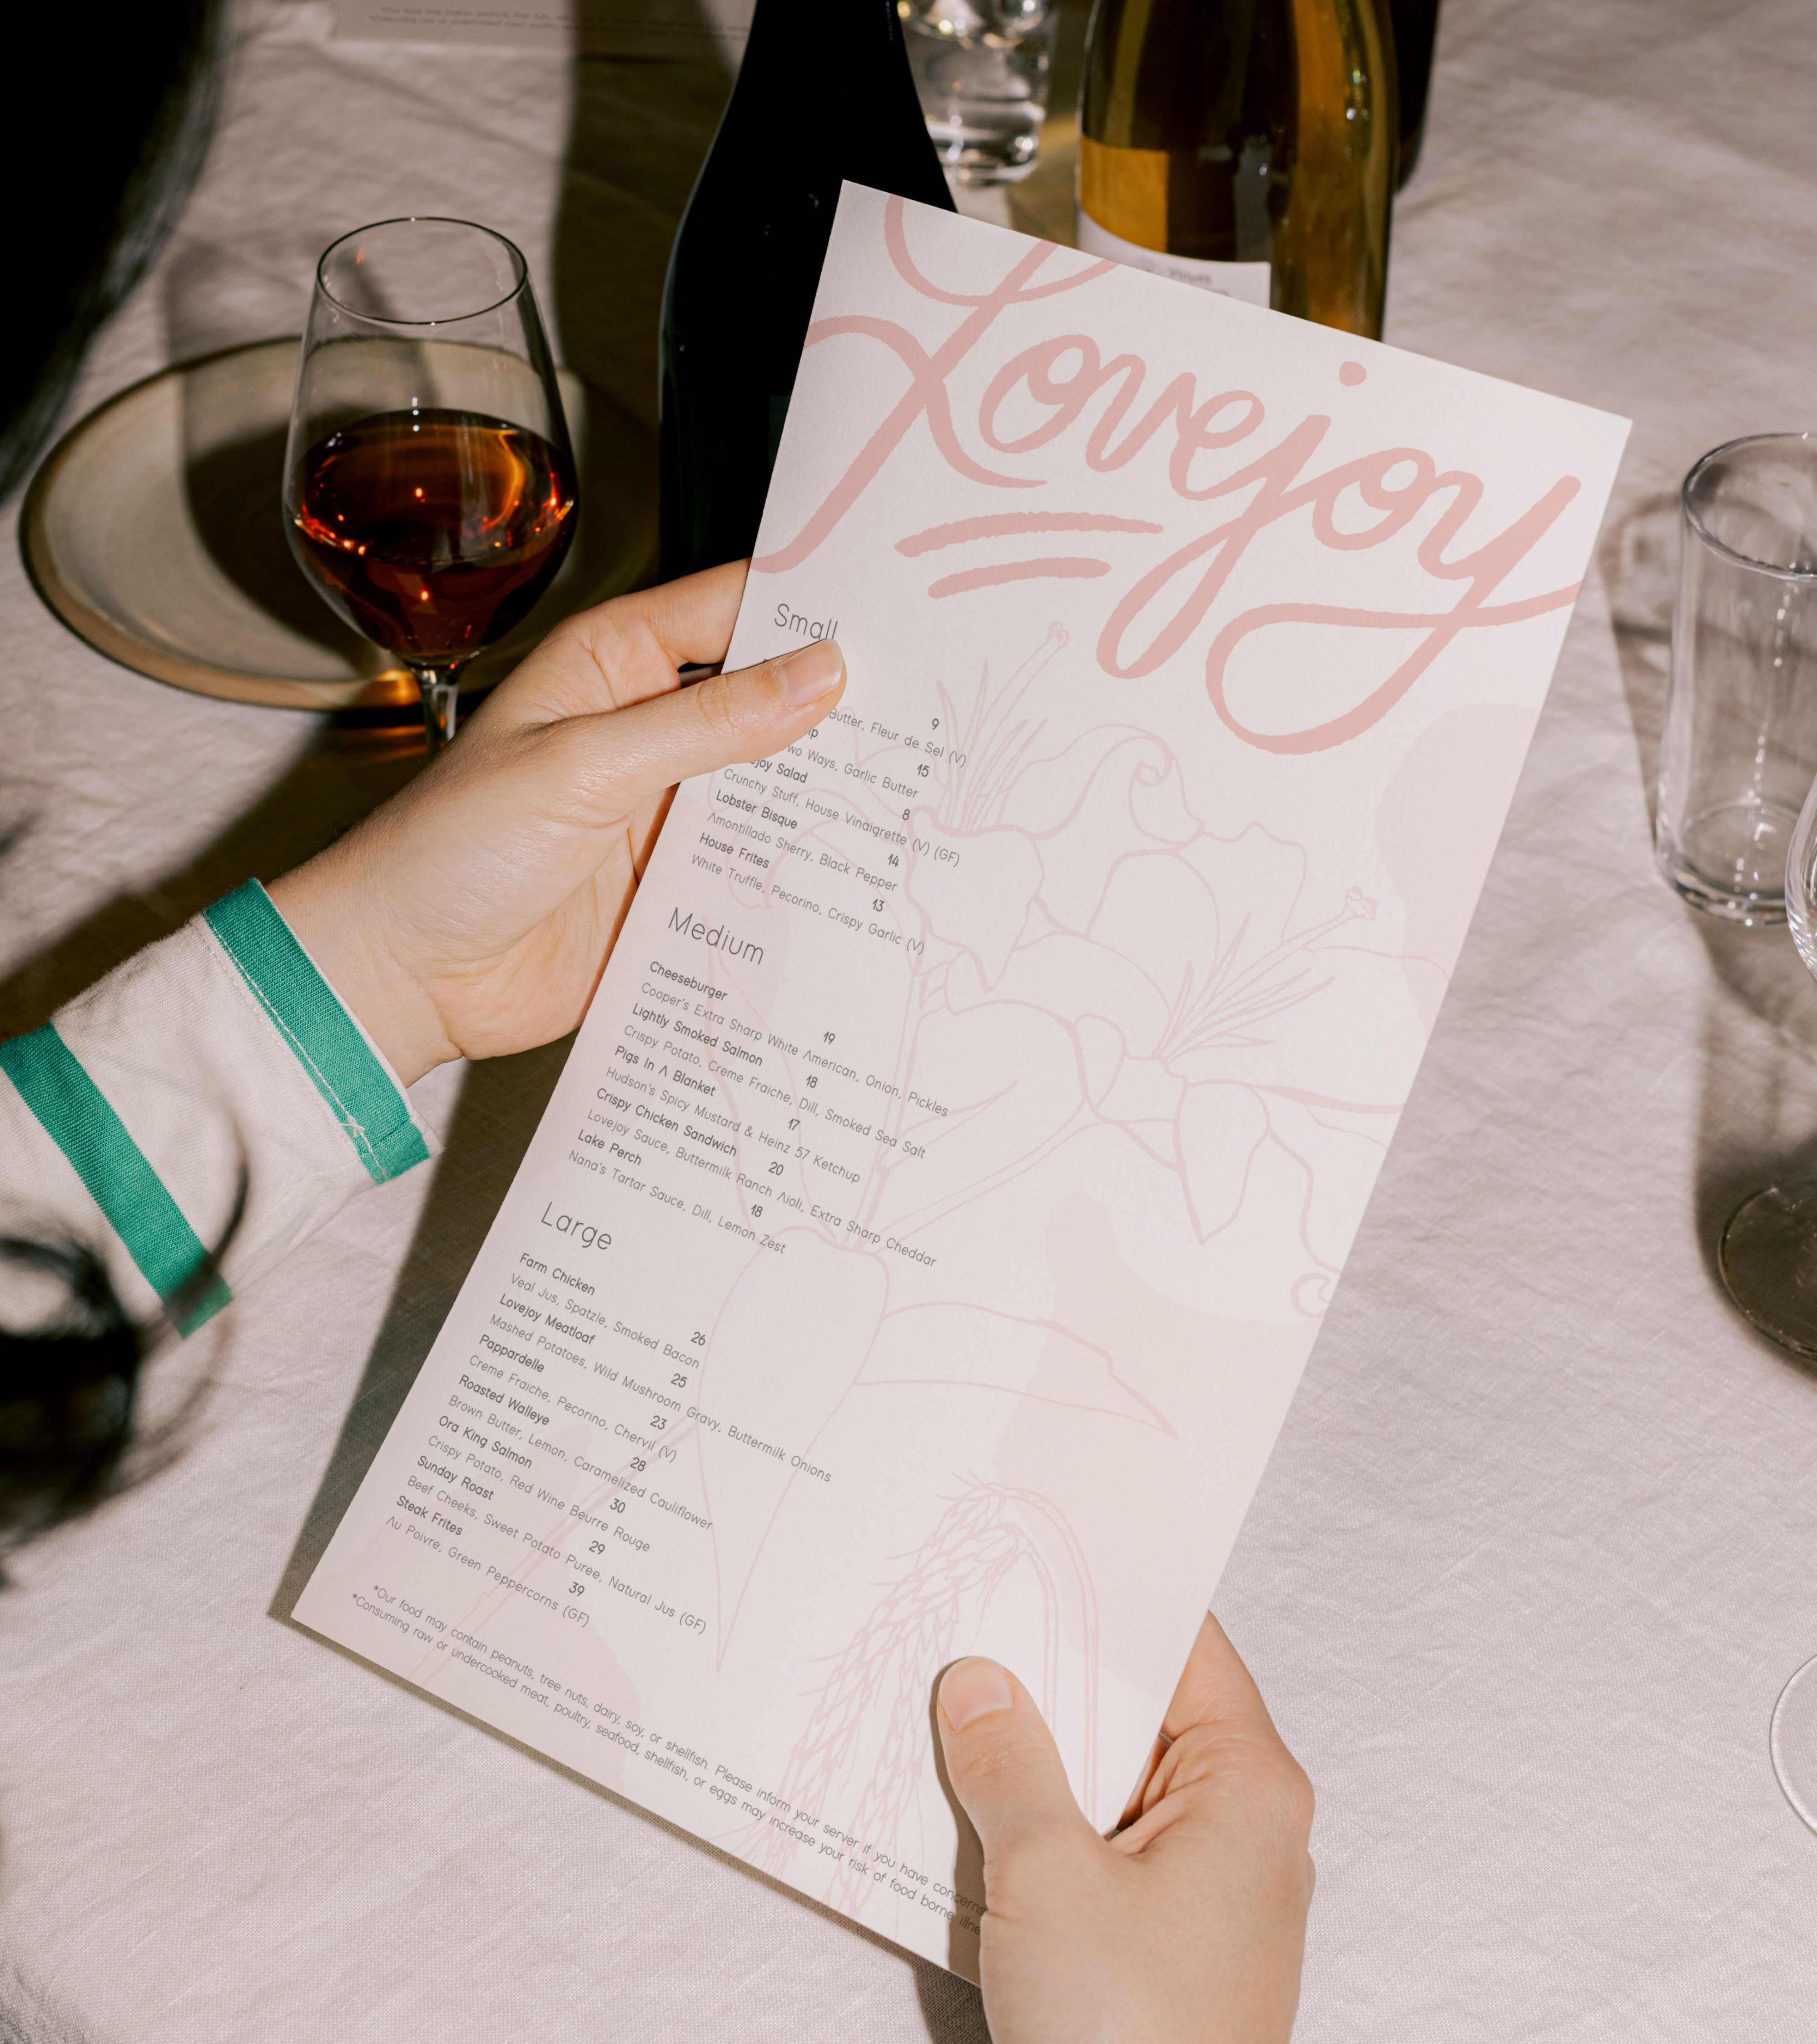 Lovejoy
Small
9
Butter, Fleur de Sel (V)
15
Ways, Garlic Butter
Salad 8
Crunchy Stuff, House Vinaigrette (V) (GF)
Lobster Bisque 14
Amontillado Sherry, Black Pepper
House Frites 13
White Truffle, Pecorino, Crispy Garlic (V)
Medium
Cheeseburger 19
Cooper's Extra Sharp White American, Onion, Pickles
Lightly Smoked Salmon 18
Crispy Potato, Creme Fraiche, Dill, Smoked Sea Salt
Pigs In A Blanket 17
Hudson's Spicy Mustard & Heinz 57 Ketchup
Crispy Chicken Sandwich 20
Lovejoy Sauce, Buttermilk Ranch Aioli, Extra Sharp Cheddar
Lake Perch 18
Nana's Tartar Sauce, Dill, Lemon Zest
Large
Farm Chicken 26
Veal Jus, Spatzle, Smoked Bacon
Lovejoy Meatloaf 25
Mashed Potatoes, Wild Mushroom Gravy, Buttermilk Onions
Pappardelle 23
Creme Fraiche, Pecorino, Chervil (V)
Roasted Walleye 28
Brown Butter, Lemon, Caramelized Cauliflower
Ora King Salmon 30
Crispy Potato, Red Wine Beurre Rouge
Sunday Roast 29
Beef Cheeks, Sweet Potato Puree, Natural Jus (GF)
Steak Frites 39
Au Poivre, Green Peppercorns (GF)
*Our food may contain peanuts, tree nuts, dairy, soy, or shellfish. Please inform your server if you have concerns
*Consuming raw or undercooked meat, poultry, seafood, shellfish, or eggs may increase your risk of food borne